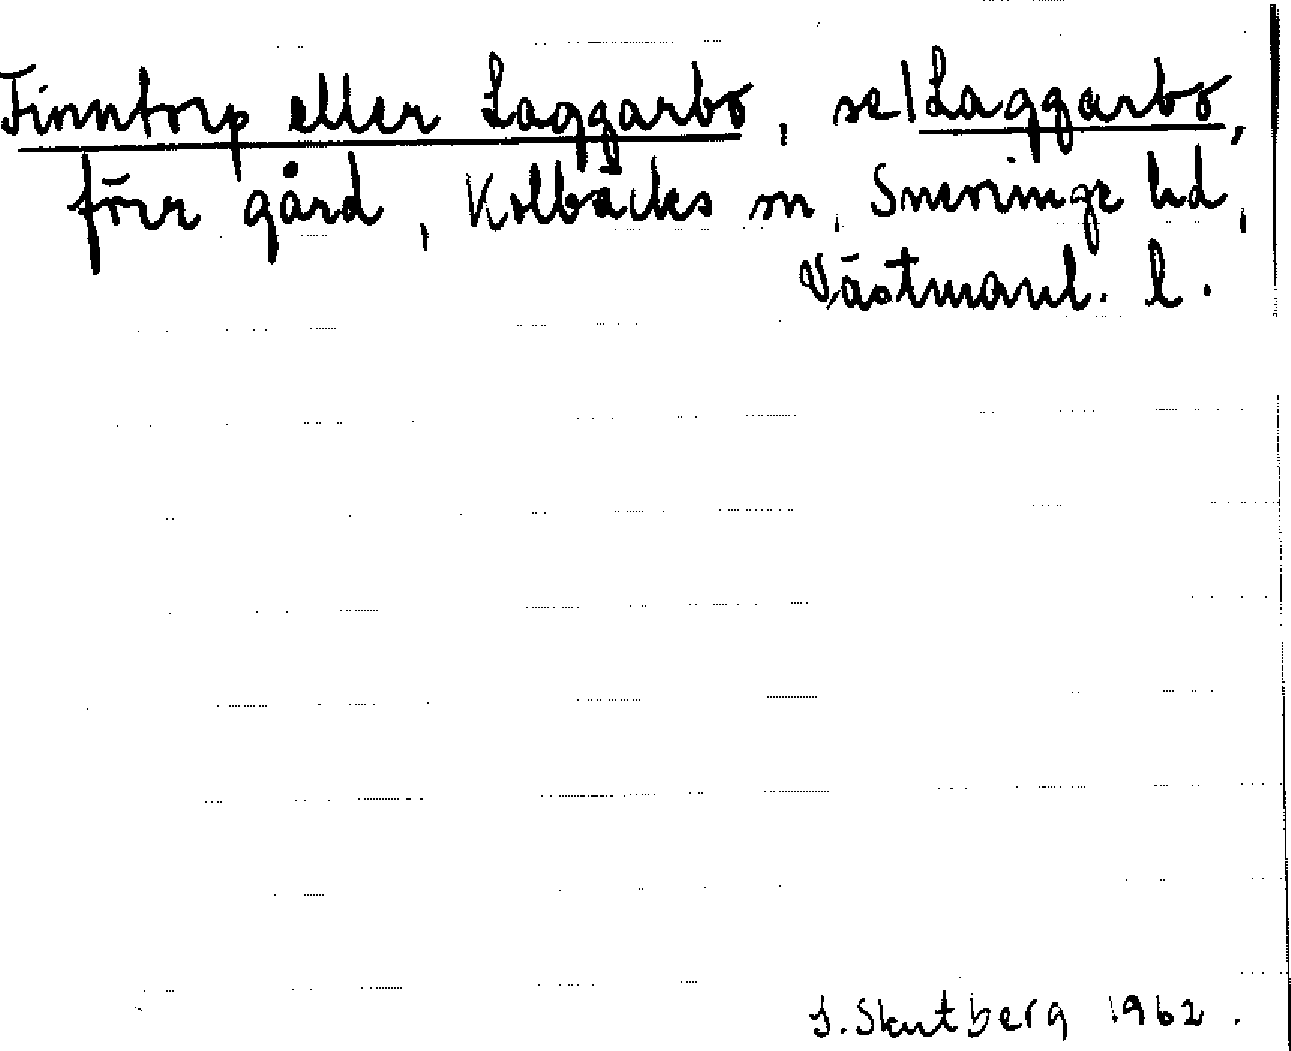 Finntorp eller Laggarbo, se/Laggarbo,
förr gård, Kolbäcks sn, Snevringe hd,
Västmanl. l.
S. Skutberg 1962.